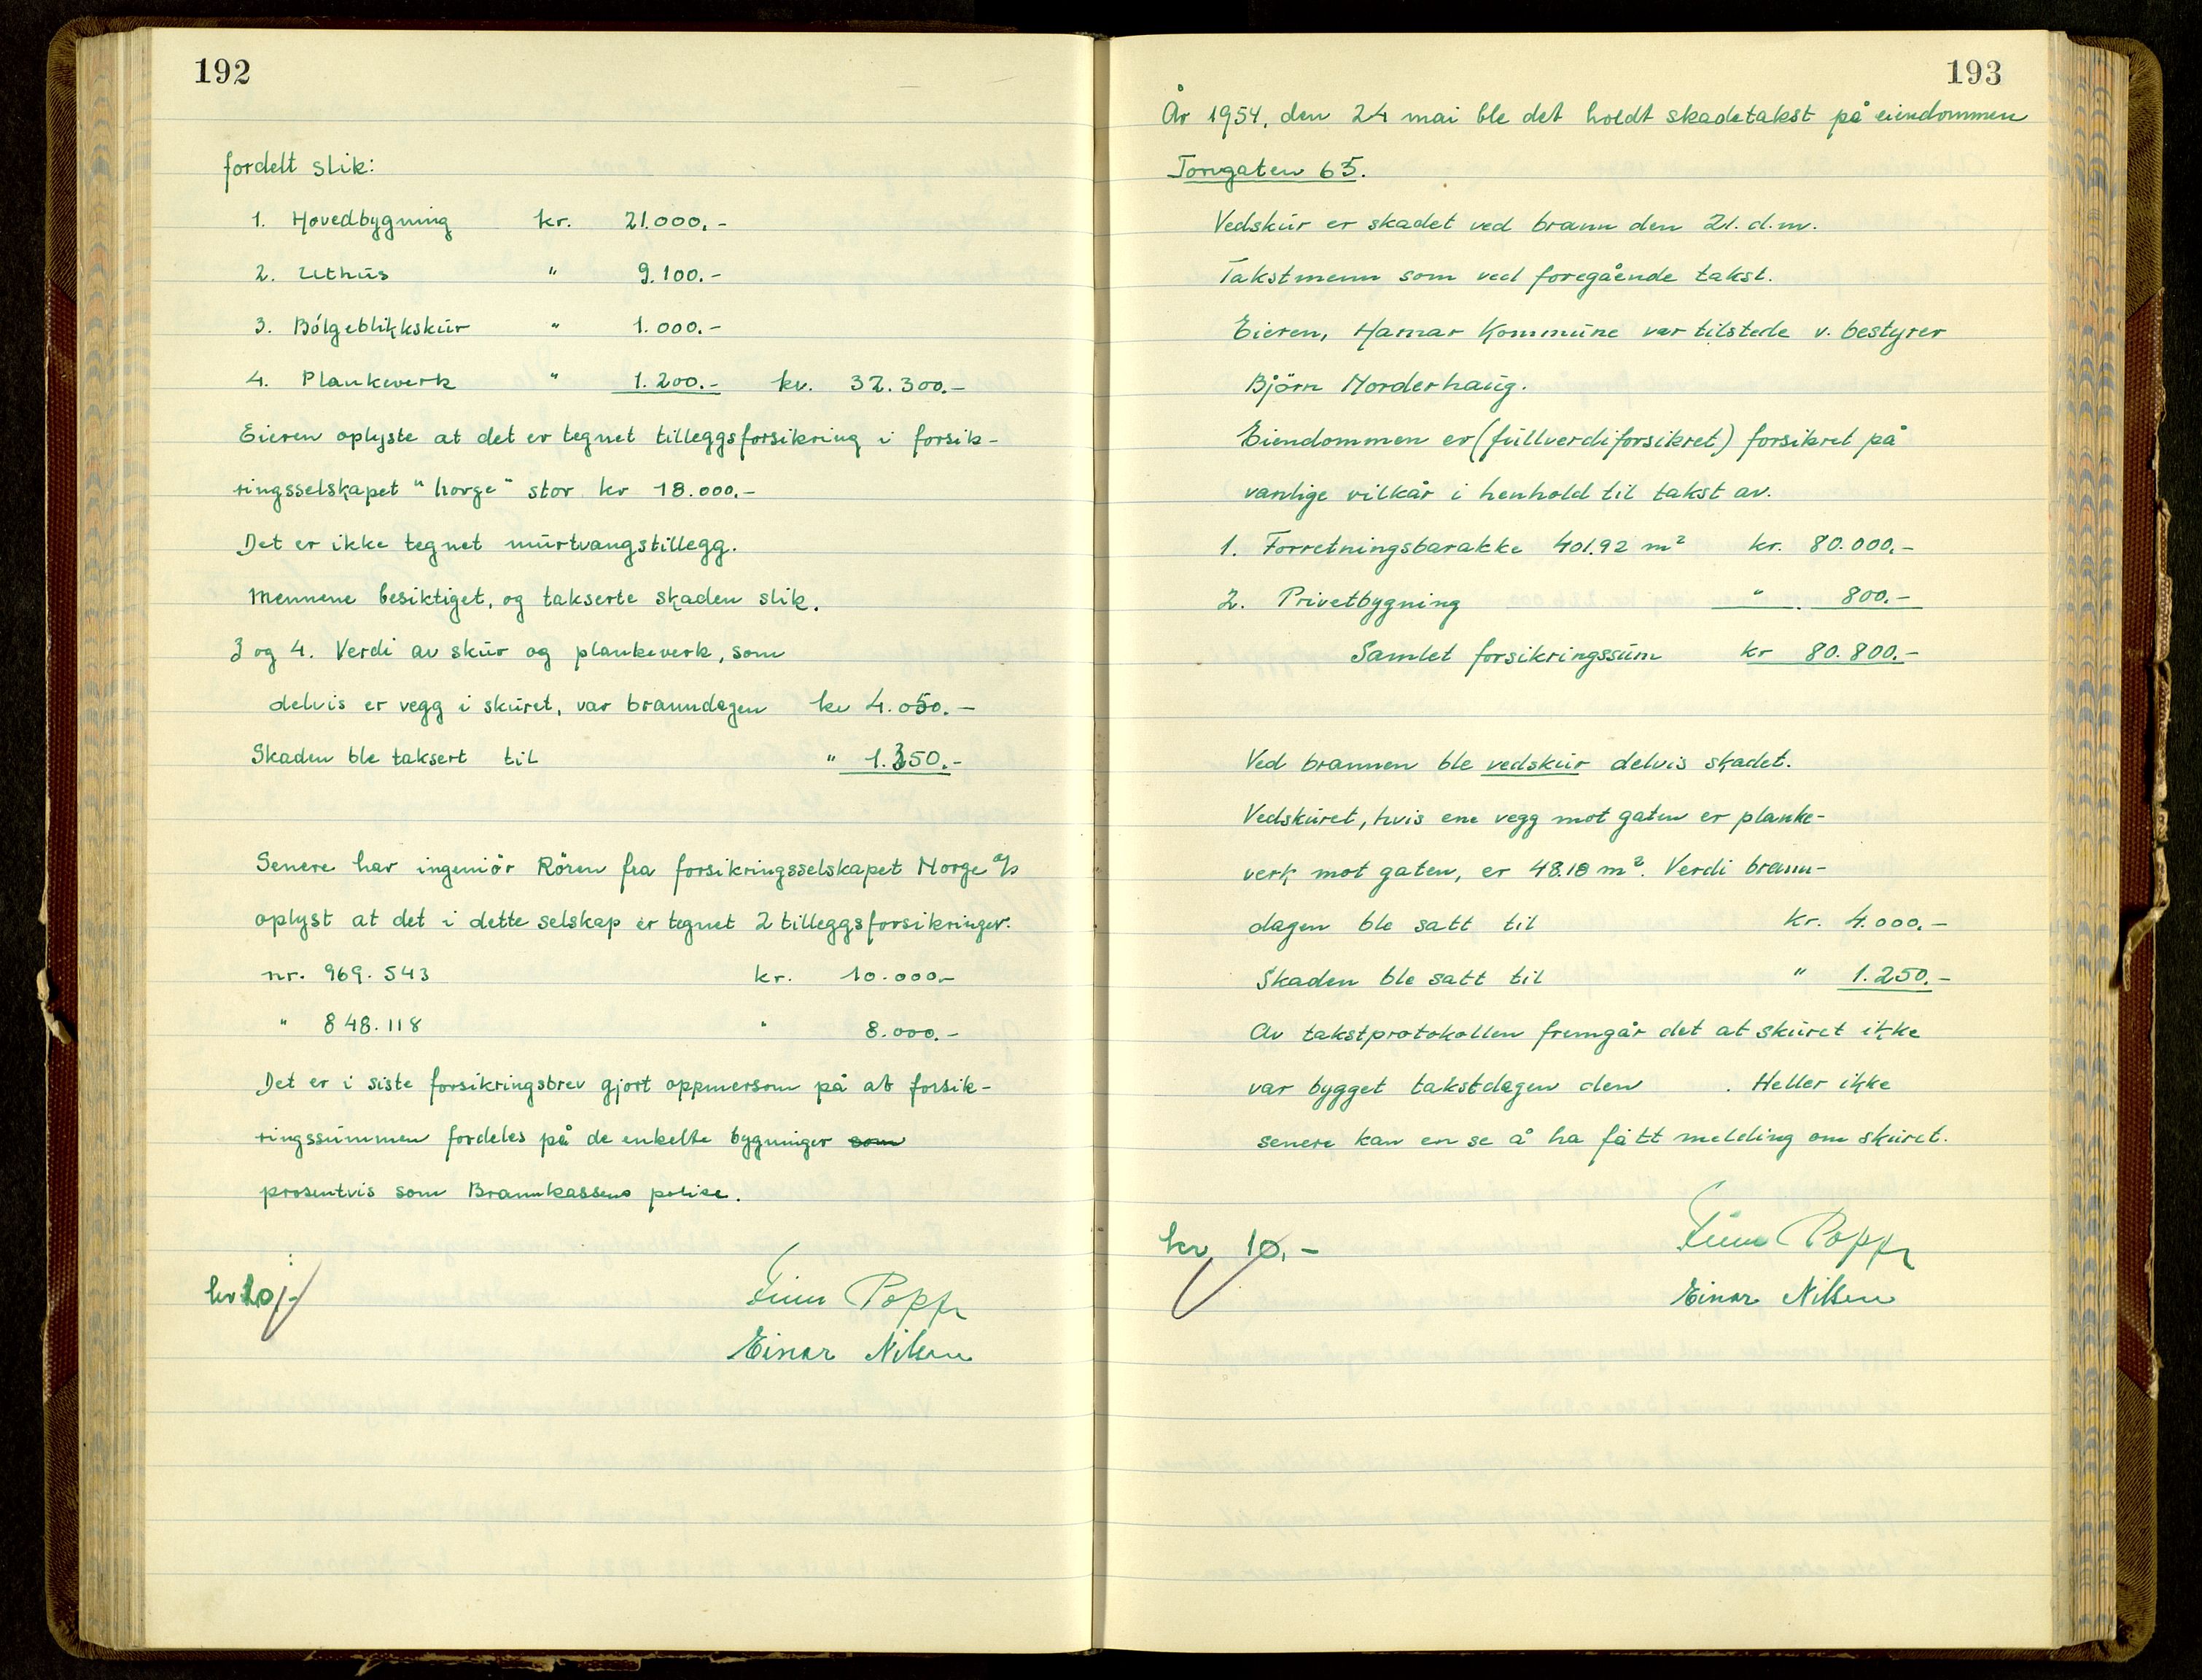 192
fordelt slik:
1. Hovedbygning kr. 21.000.-
2. Uthus " 9.100.-
3. Bölgeblikkskur " 1.000.-
4. Plankeverk " 1.200.- kr. 32.300.-
Eieren oplyste at det er tegnet tilleggsforsikring i forsik-
ringsselskapet "Norge" stor kr 18.000.-
Det er ikke tegnet murtvangstillegg.
Mennene besiktiget, og takserte skaden slik.
3 og 4. Verdi av skur og plankeverk, som
delvis er vegg i skuret, var branndagen kr 4.050.-
Skaden ble taksert til " 1.350.-
Senere har ingeniör Rören fra forsikringsselskapet Norge a/s
oplyst at det i dette selskap er tegnet 2 tilleggsforsikringer.
nr. 969.543 kr. 10.000.-
" 848.118 " 8.000.-
Det er i siste forsikringsbrev gjort oppmersom på at forsik-
ringssummen fordeles på de enkelte bygninger som
prosentvis som Brannkassens polise.
kr 10,-
Finn Popp
Einar Nilsen
193
År 1954, den 24 mai ble det holdt skadetakst på eiendommen
Torvgaten 65.
Vedskur er skadet ved brann den 21. d.m.
Takstmenn som ved foregående takst.
Eieren, Hamar Kommune var tilstede v. bestyrer
Björn Norderhaug.
Eiendommen er (fullverdiforsikret) forsikret på
vanlige vilkår i henhold til takst av.
1. Forretningsbarakke 401.92 m² kr. 80.000.-
2. Privetbygning " 800.-
Samlet forsikringssum kr 80.800.-
Ved brannen ble vedskur delvis skadet.
Vedskuret, hvis ene vegg mot gaten er planke-
verk mot gaten, er 48.18 m². Verdi brann-
dagen ble satt til kr. 4.000.-
Skaden ble satt til " 1.250.-
Av takstprotokollen fremgår det at skuret ikke
var bygget takstdagen den . Heller ikke
senere kan en se å ha fått melding om skuret.
kr. 10,-
Finn Popp
Einar Nilsen